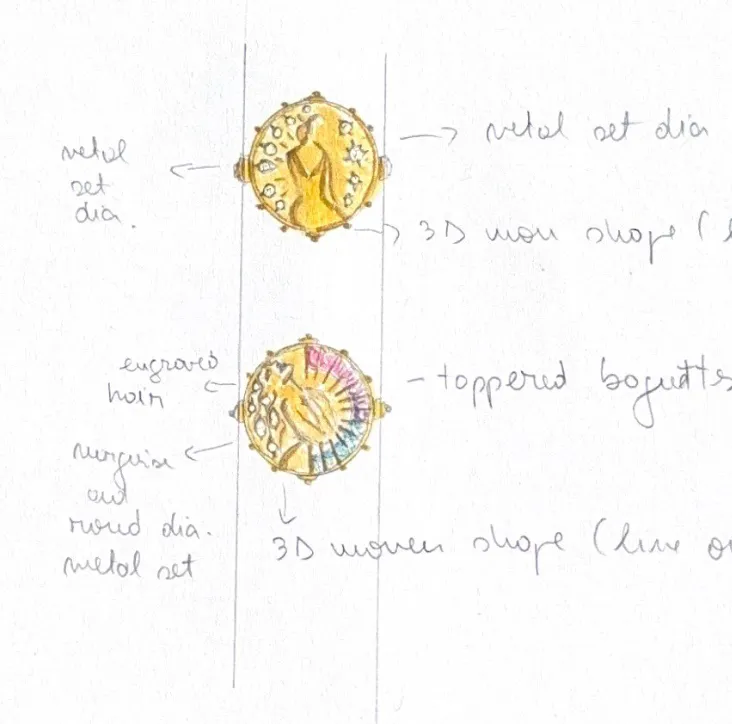 metal
set
dia.
metal set dia
3D man shape (
engraved
hair
- toppered baguttes
marquise
and
round dia.
metal set
3D women shape (line